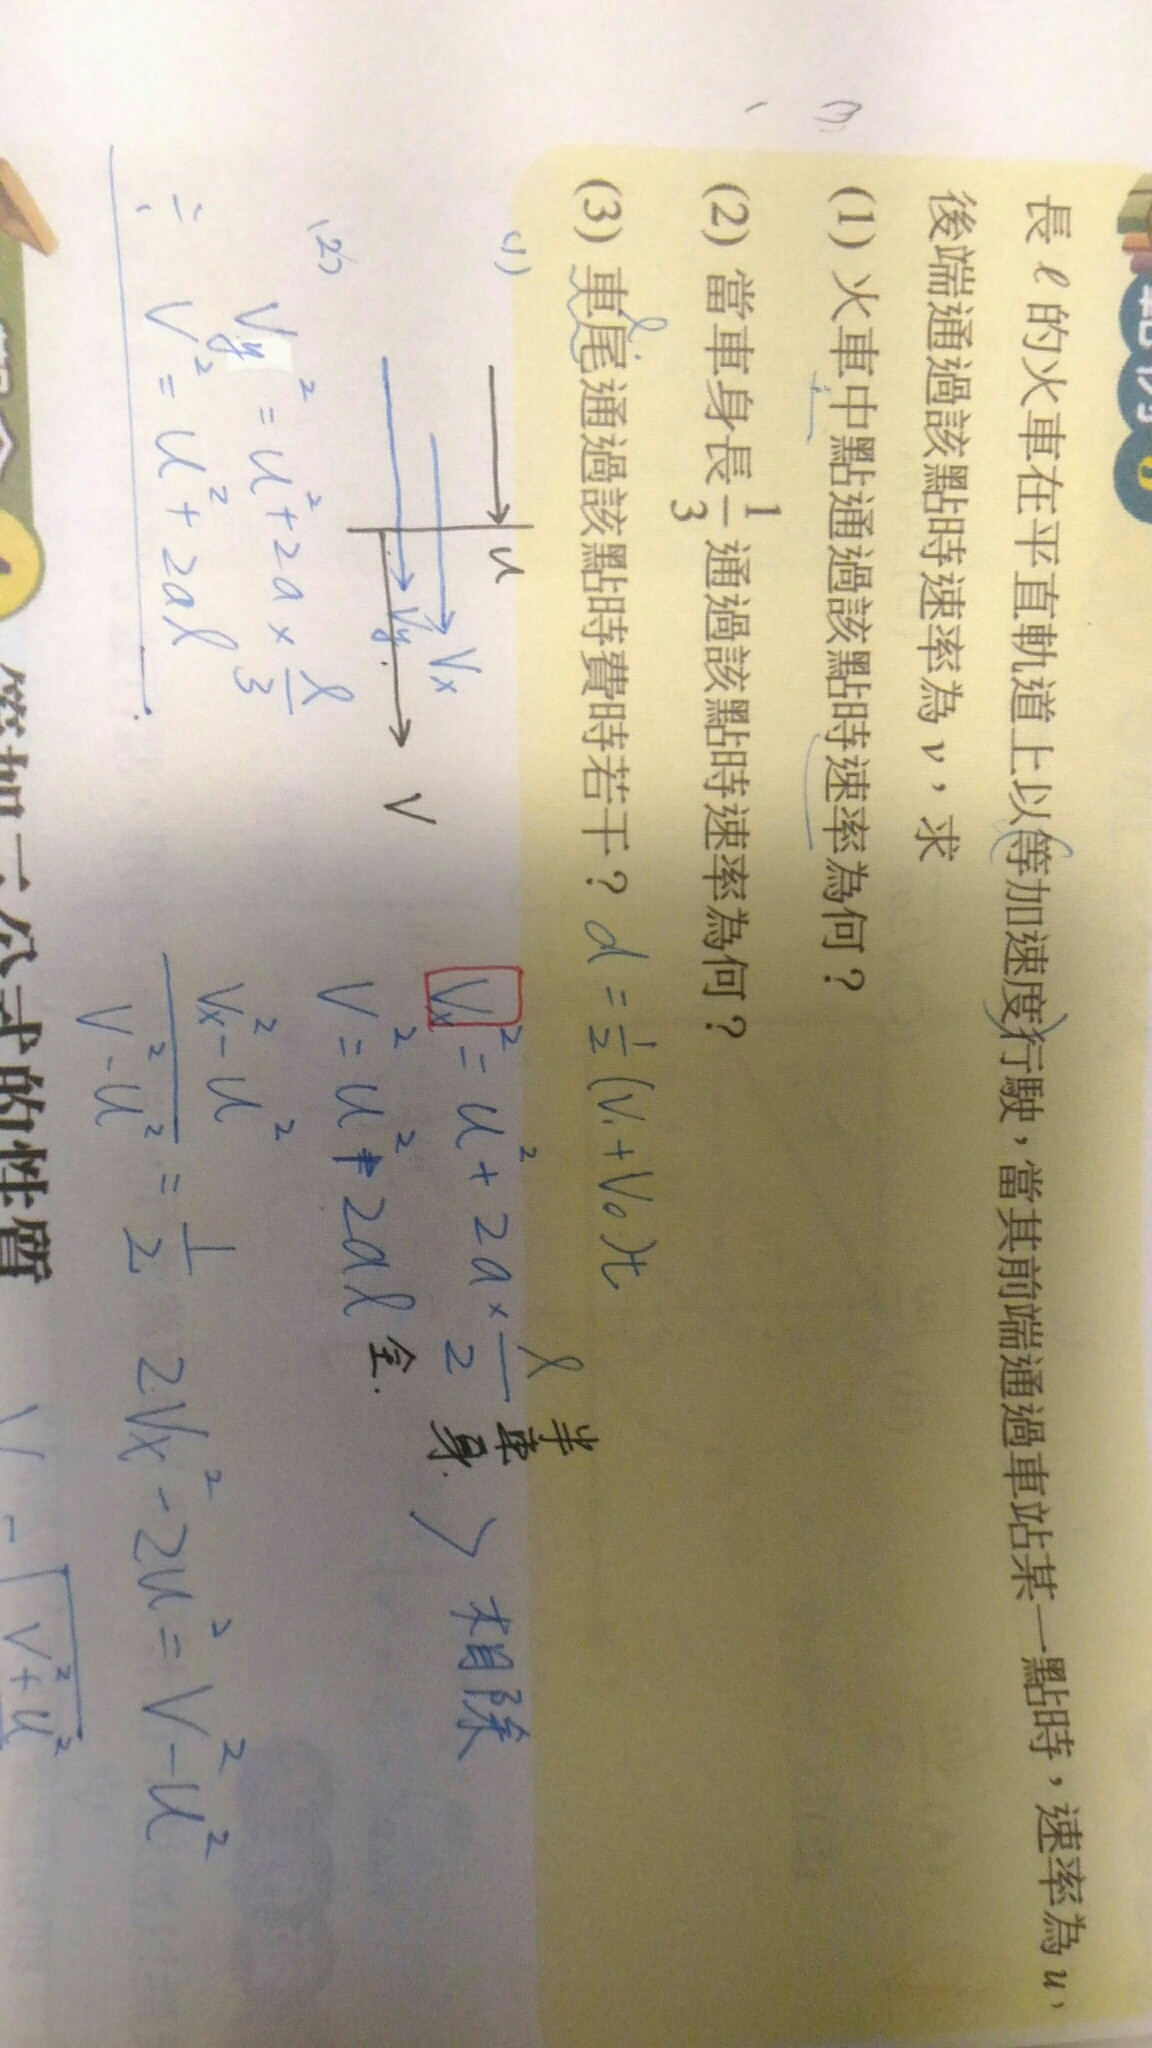 範例 6
長 ℓ 的火車在平直軌道上以等加速度行駛，當其前端通過車站某一點時，速率為 u，
後端通過該點時速率為 v，求
(1) 火車中點通過該點時速率為何？
(2) 當車身長 1/3 通過該點時速率為何？
(3) 車尾通過該點時費時若干？ d = 1/2 (V₁+V₀)t
ℓ
(1)
u
Vx
Vy
V
Vx² = u² + 2a × ℓ/2 半車身
V² = u² + 2aℓ 全.
> 相除
(Vx² - u²)/(V² - u²) = 1/2
2Vx² - 2u² = V² - u²
V²+u²
(2)
Vy² = u² + 2a × ℓ/3
V² = u² + 2aℓ
等加
公式的性質